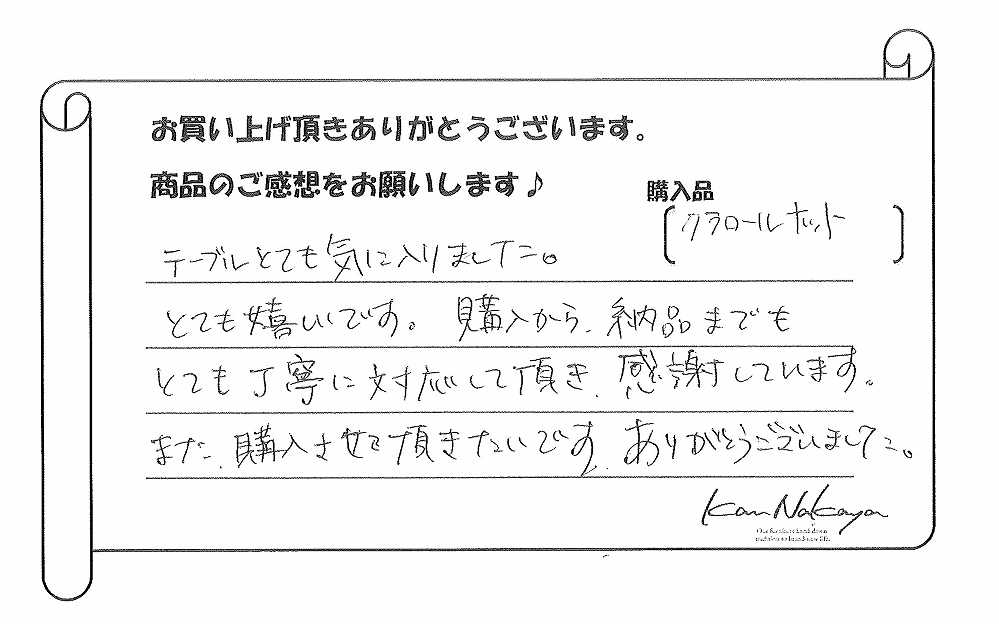 お買い上げ頂きありがとうございます。
商品のご感想をお願いします♪
購入品
クラロールホット
テーブルとても気に入りました。
とても嬉しいです。購入から、納品までも
とても丁寧に対応して頂き、感謝しています。
また、購入させて頂きたいです。ありがとうございました。
Kan Nakaya